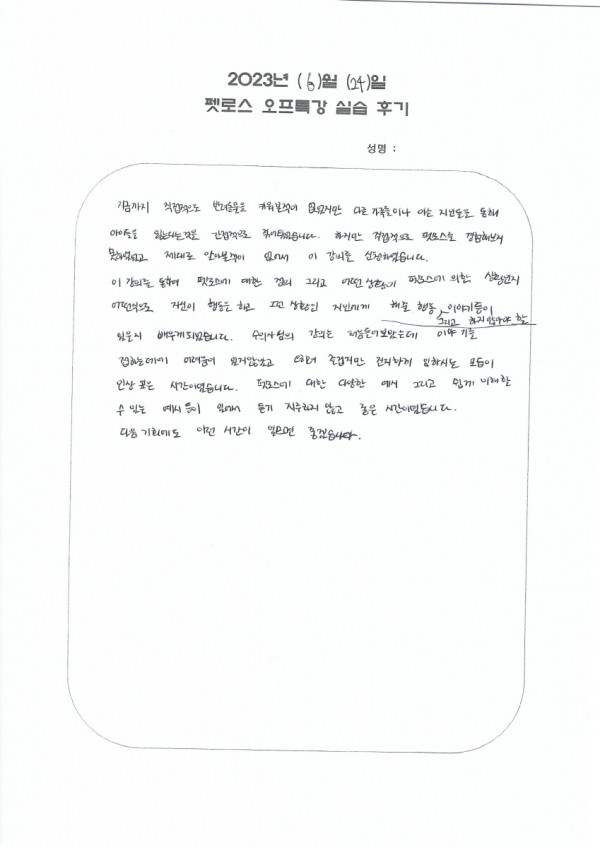 2023년 (6)월 (24)일
펫로스 오프특강 실습 후기
성명 :
지금까지 직접적으로 반려동물을 키워본적이 없었지만 다른 가족들이나 아는 지인들을 통해
아이들을 잃는다는것을 간접적으로 되었습니다. 하지만 직접적으로 펫로스를 경험해보지
못하였고 제대로 알아본적이 없어서 이 강의를 신청하였습니다.
이 강의를 통하여 펫로스에 대한 정의 그리고 어떤 상황이 펫로스에 의한 상황인지
어떤식으로 자신이 행동을 하고 그런 상황인 지인에게 해줄 행동, 이야기등이
그리고 하지말아야 할
있을지 배우게되었습니다. 수의사님의 강의는 처음들어보았는데 이야기를
접하는데에 어려움이 있지않았고 즐겁지만 진지하게 임하시는 모습이
인상 깊은 시간이었습니다. 펫로스에 대한 다양한 예시 그리고 쉽게 이해할
수 있는 예시들이 있어서 듣기 지루하지 않고 좋은 시간이었습니다.
다음 기회에도 이런 시간이 있으면 좋겠습니다.